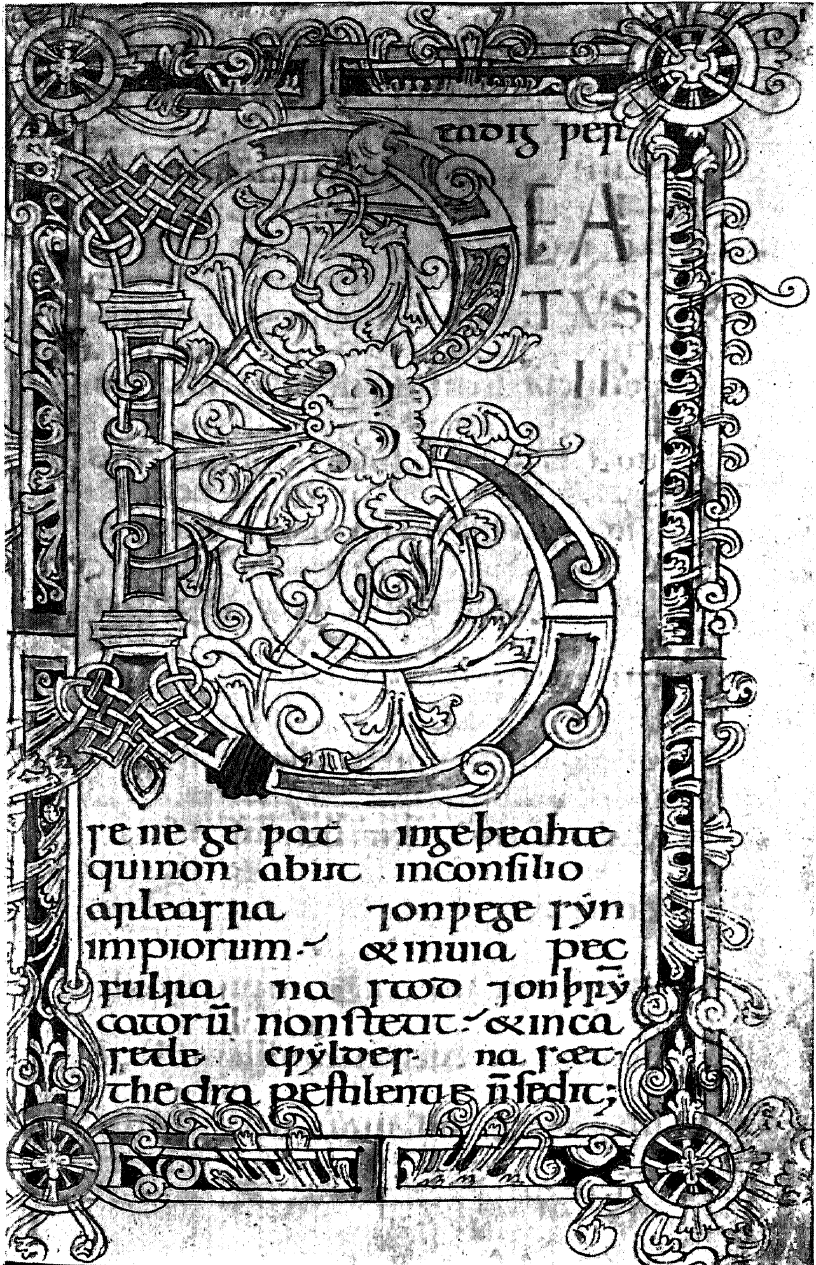 eadig ƿer
BEA
TVS
IR
se ne ge ƿat ingeþeahte
quinon abiit inconsilio
arleasra ⁊onƿege sẏn
impiorum· &inuia pec
fulra na stod ⁊onþrẏ
catorū non stetit· &inca
setle cƿẏldes· na sæt·
thedra pestilentiae n̄sedit;